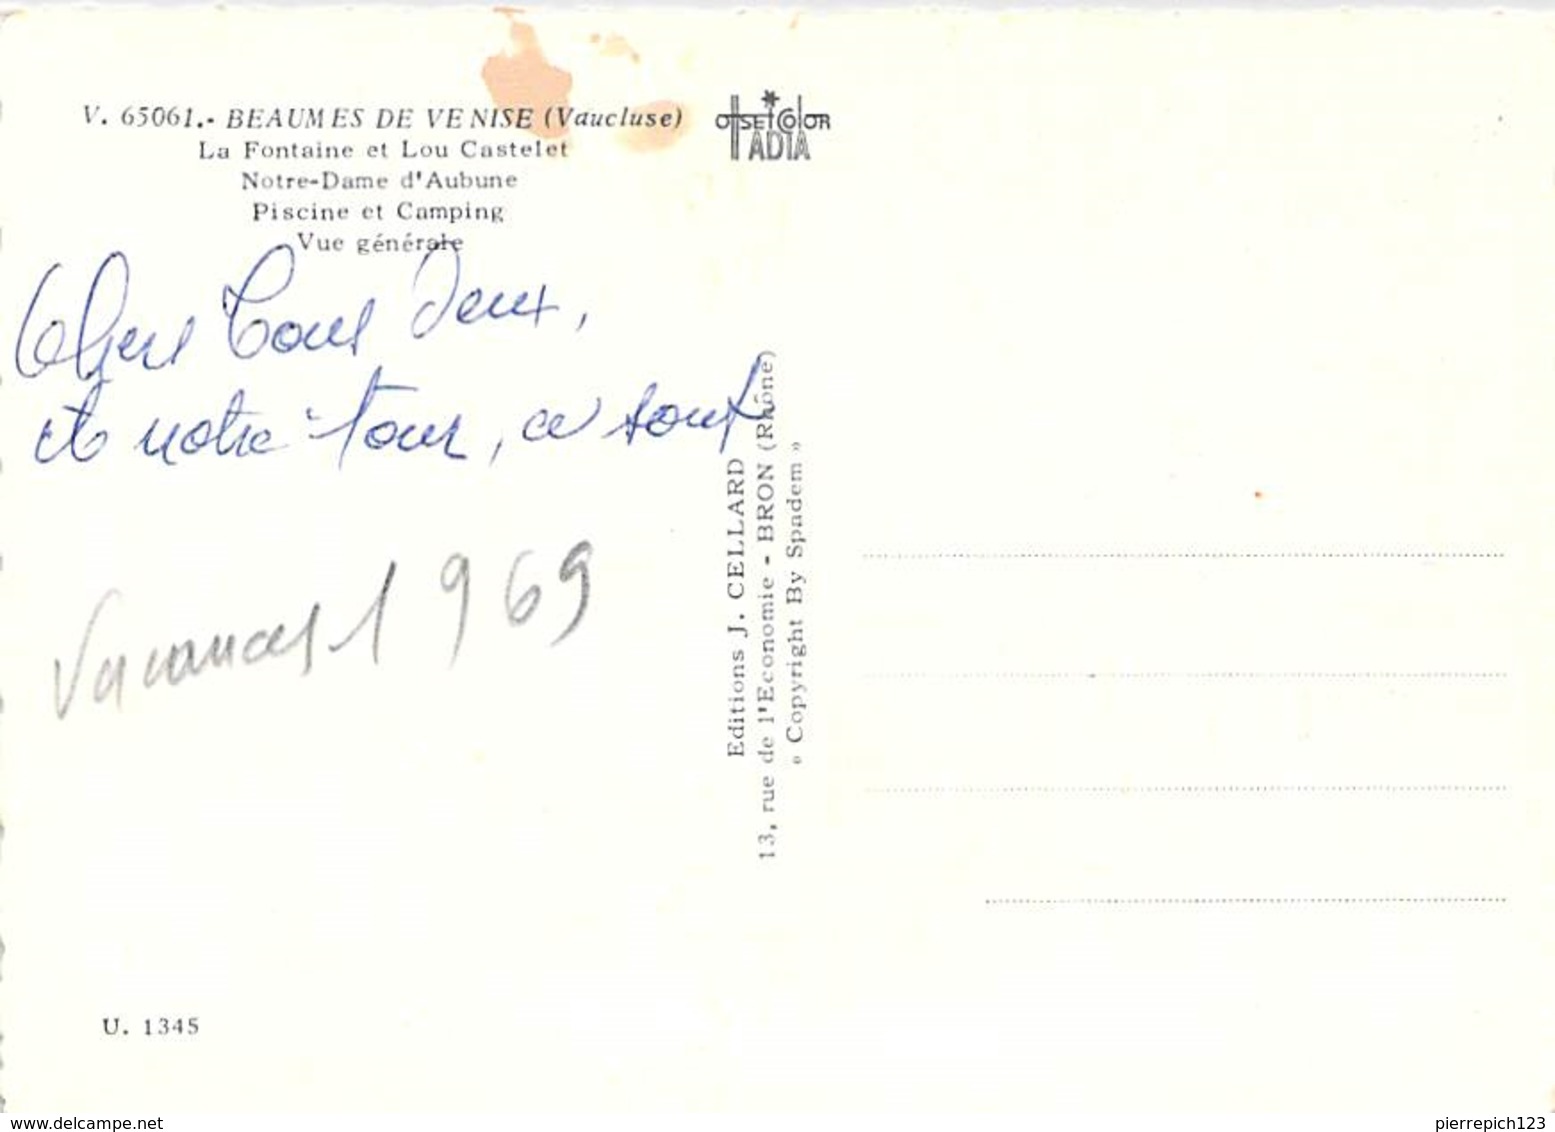 V. 65061.- BEAUMES DE VENISE (Vaucluse)
La Fontaine et Lou Castelet
Notre-Dame d'Aubune
Piscine et Camping
Vue générale
OFFSET COLOR
IADIA
Chers Tous Deux,
à notre tour, ce sont
Vacances 1969
Editions J. CELLARD
13, rue de l'Economie - BRON (Rhône)
« Copyright By Spadem »
U. 1345
www.delcampe.net
pierrepich123